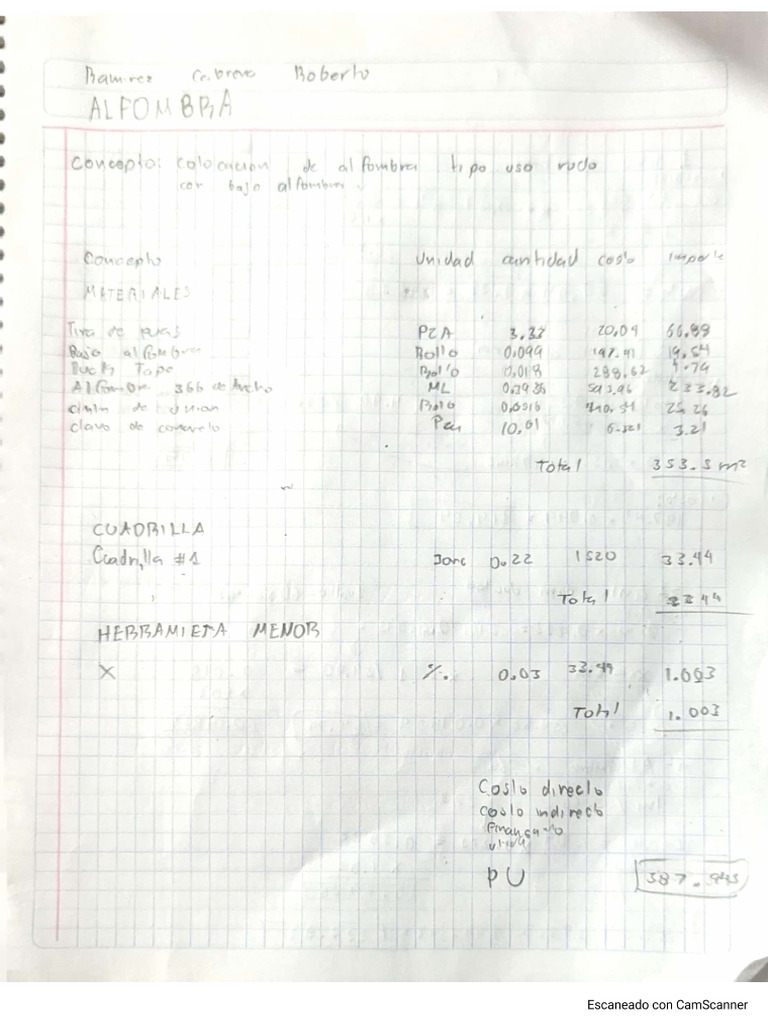 Ramirez Cabrera Roberto
ALFOMBRA
Concepto: colocacion de alfombra tipo uso rudo
con bajo alfombra.
Concepto Unidad cantidad costo Importe
MATERIALES
Tira de puas PZA 3.33 20.04 66.88
Bajo alfombra Rollo 0.099 197.41 19.54
Duck Tape Rollo 0.018 288.62
Alfombra 366 de Ancho ML 593.96 233.82
de union Rollo 25.26
clavo de concreto Pza 10.01 3.21
Total 353.5 m2
CUADRILLA
Cuadrilla #1 Jorc 0.22 1520 33.44
Total
HERRAMIETA MENOR
X %. 0.03 33.44 1.003
Total 1.003
Costo directo
costo indirecto
PU 387.943
Escaneado con CamScanner